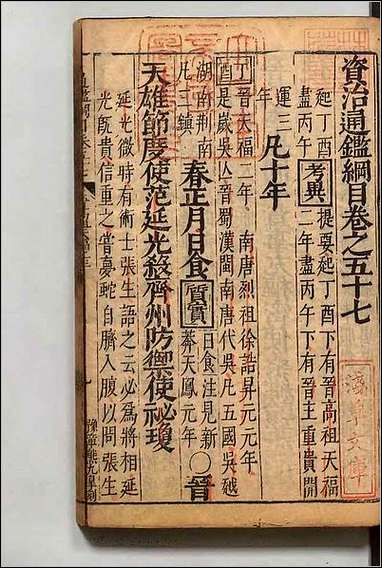 資治通鑑綱目卷之五十七
起丁酉
盡丙午
考異
提要起丁酉下有晉高祖天福
二年盡丙午下有晉主重貴開
運三
年
凡十年
丁晉天福二年 南唐烈祖徐誥昇元元年
酉是歲吳亡晉蜀漢閩南唐代吳凡五國吳越
湖南荆南
凡三鎮
春正月日食
質實
日食注見新
莽天鳳元年
○晉
天雄節度使范延光殺齊州防禦使祕瓊
延光微時有術士張生語之云必為將相延
光旣貴信重之嘗夢蛇自臍入腹以問張生